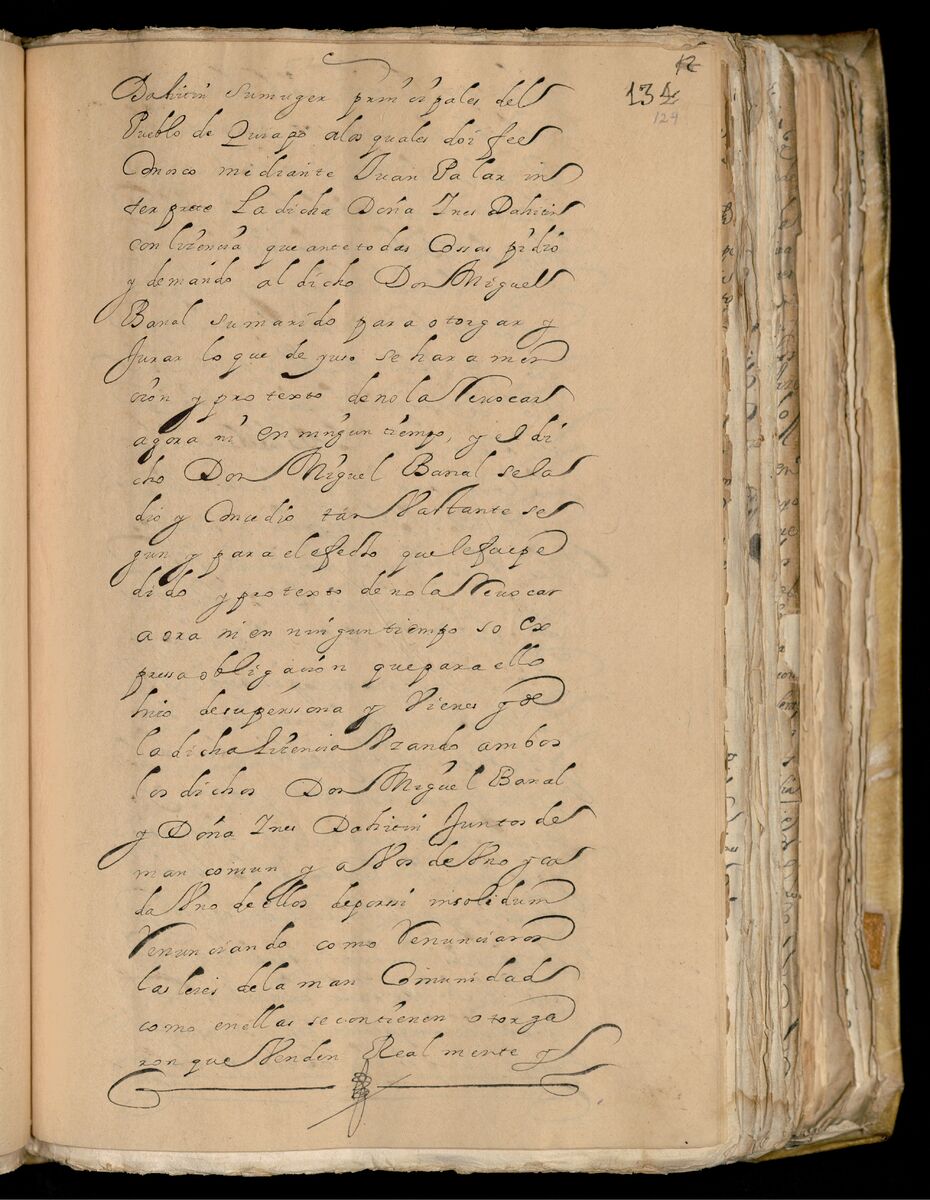 12
134
124
Dahitin sumuger prinçipales del
Pueblo de Quiapo alos quales doi fee
Conosco mediante Juan Palar in
terprete La dicha Doña Ines Dahitin
con liçençia que ante todas Cossas pidio
y demando al dicho Don Miguel
Banal sumarido para otorgar y
Jurar lo que de yuso se hara men
cion y protexto de no la Revocar
agora ni en ningun tiempo, y el di
cho Don Miguel Banal se la
dio y Concedio tan Vastante se
gun y para el efecto que le fue pe
dido y protexto de no la Revocar
aora ni en ningun tiempo so ex
pressa obligaçion que para ello
hiço de su perssona y Vienes y de
la dicha liçencia Vzando ambos
los dichos Don Miguel Banal
y Doña Ines Dahitin Juntos de
man comun y a Vos de Vno y ca
da Vno de ellos deporssi insolidum
Renunciando como Renunciaron
las leies dela man Comunidad
como en ellas se contienen otorga
ron que Venden Realmente y